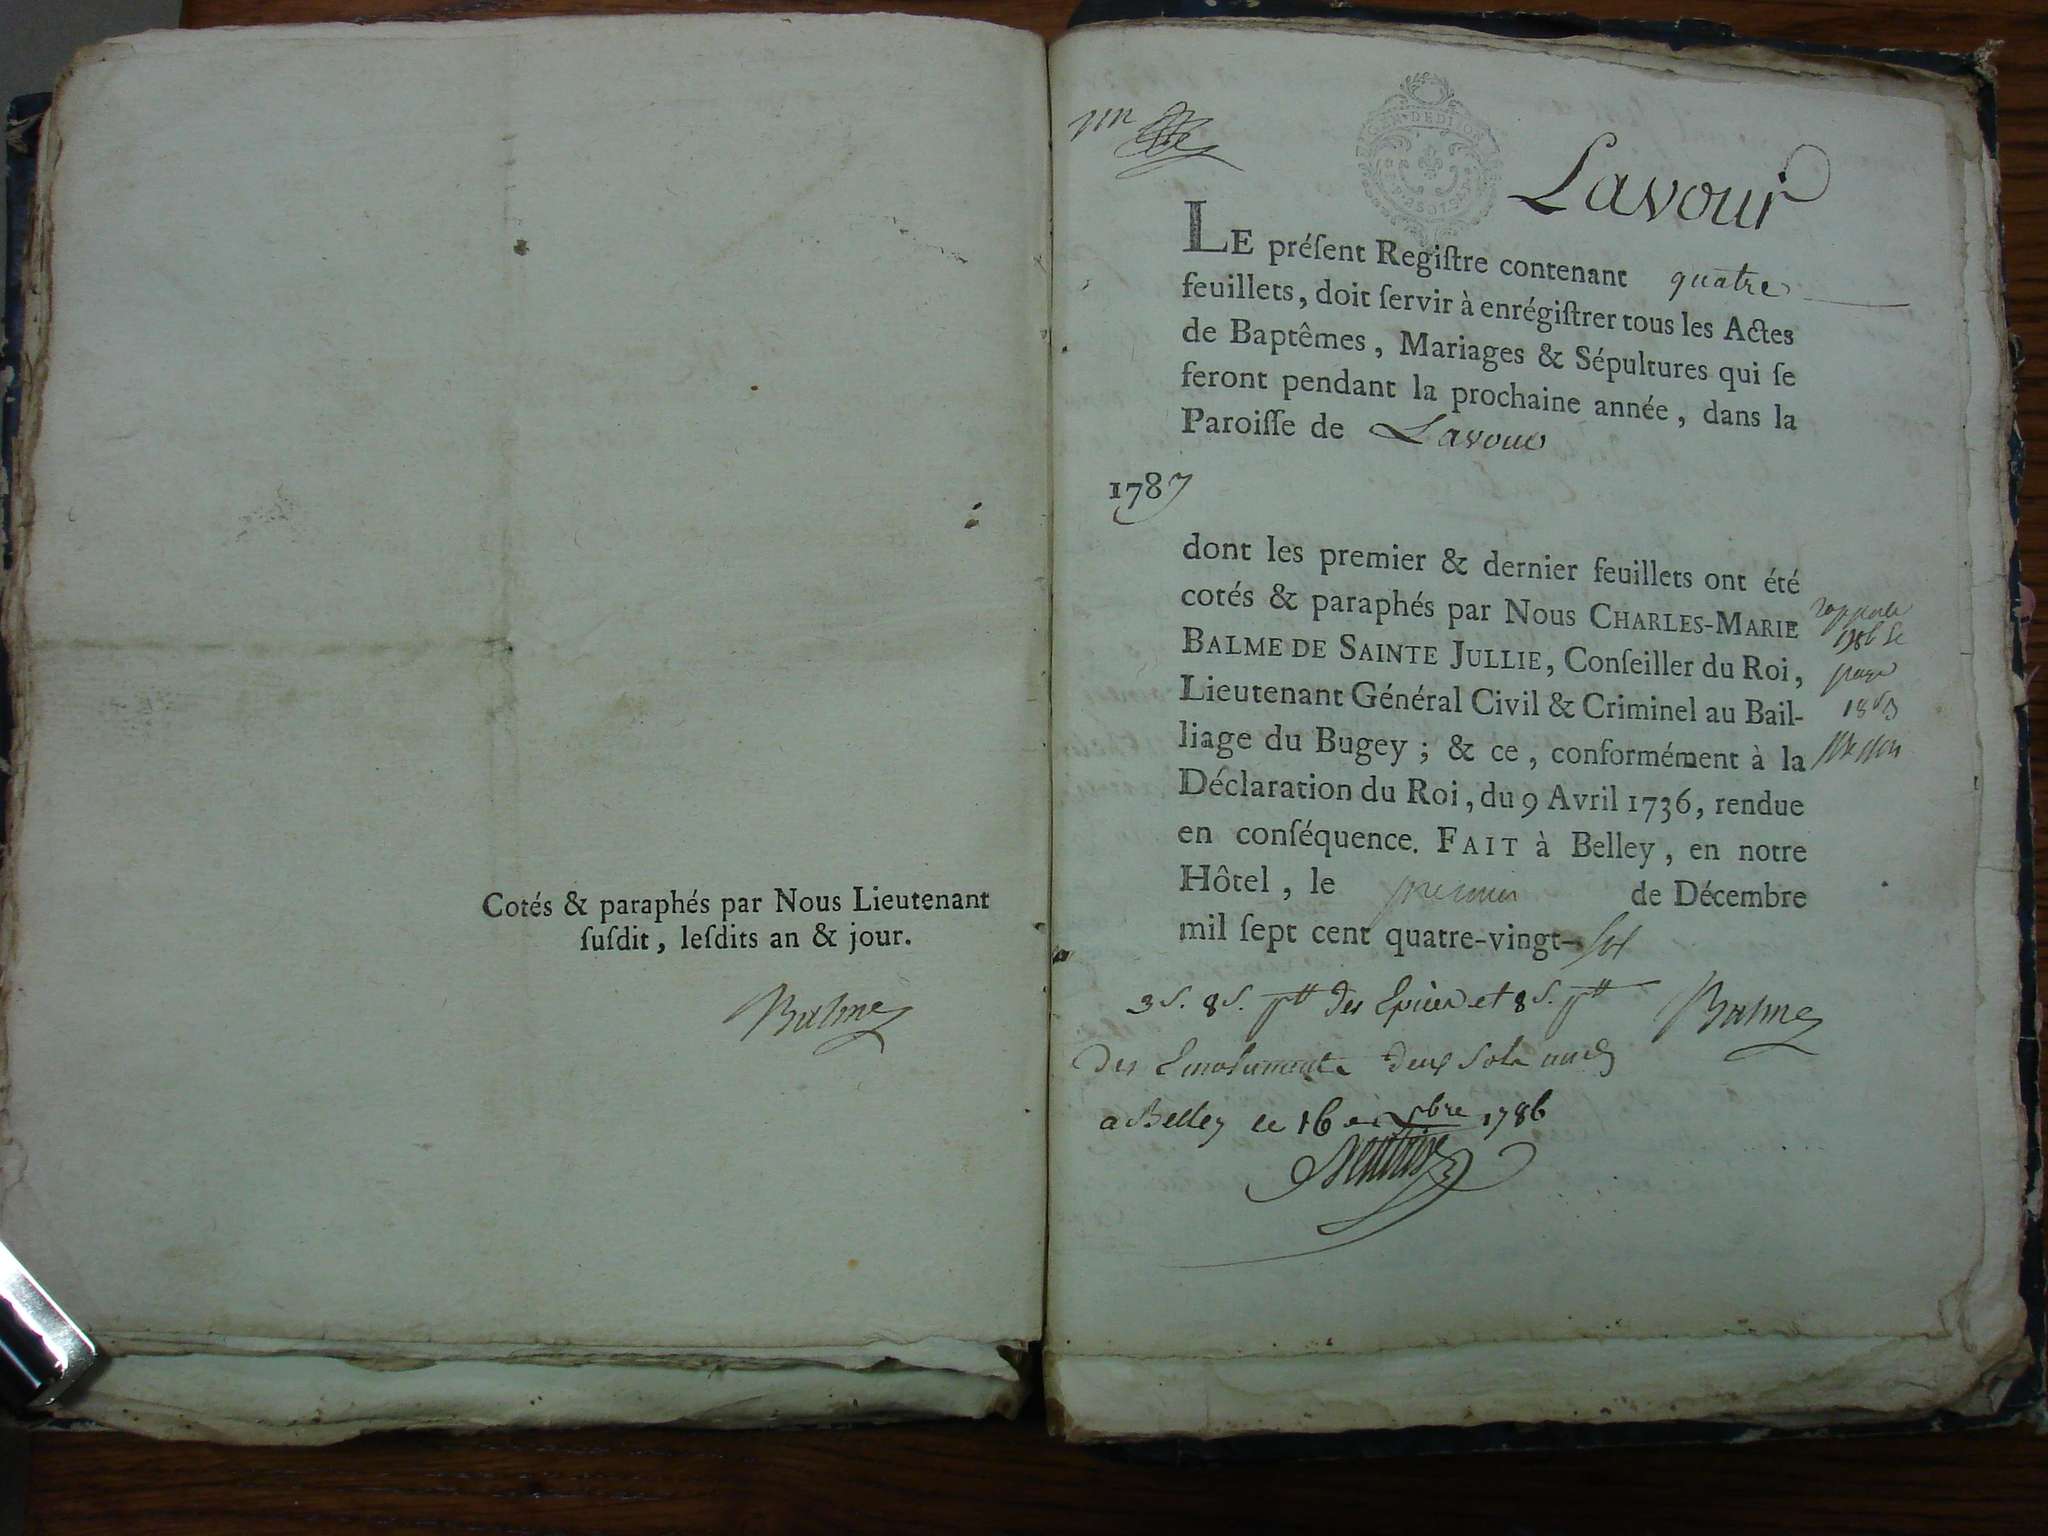 Cotés & paraphés par Nous Lieutenant
ſuſdit, leſdits an & jour.
Balme
Lavour
LE préſent Regiſtre contenant quatre
feuillets, doit ſervir à enrégiſtrer tous les Actes
de Baptêmes, Mariages & Sépultures qui ſe
feront pendant la prochaine année, dans la
Paroiſſe de Lavour
1787
dont les premier & dernier feuillets ont été
cotés & paraphés par Nous CHARLES-MARIE
BALME DE SAINTE JULLIE, Conſeiller du Roi,
Lieutenant Général Civil & Criminel au Bail-
liage du Bugey ; & ce, conformément à la
Déclaration du Roi, du 9 Avril 1736, rendue
en conſéquence. FAIT à Belley, en notre
Hôtel, le premier de Décembre
mil ſept cent quatre-vingt-six
3 s. 8 s. des Epices et 8 s.
Balme
Des Emolumente deux sols
a Belley le 16 1786